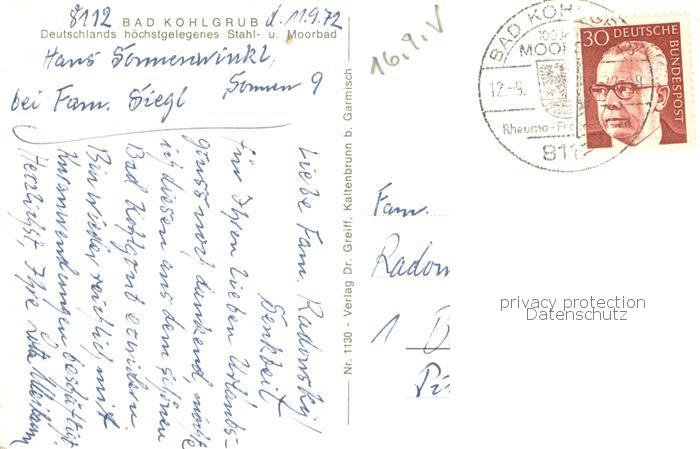 8112 BAD KOHLGRUB d. 11.9.72
Deutschlands höchstgelegenes Stahl- u. Moorbad
Hans Sonnenwinkl,
Sonnen 9
bei Fam. Siegl
Liebe Fam. Radowsky!
Für Ihren lieben Urlaubs-
gruss noch dankend, möchte
ich diesen aus dem schönen
Bad Kohlgrub erwidern.
Bin wieder reichlich mit
Kuranwendungen beschäftigt
Herzlichst, Ihre
Nr. 1130 - Verlag Dr. Greiff, Kaltenbrunn b. Garmisch
16.9.V
BAD KOHLGRUB
100 J
MOOR
12.-9.
Rheuma-Fra
8112
30 DEUTSCHE
BUNDESPOST
Fam.
Radow
1 B
privacy protection
Datenschutz